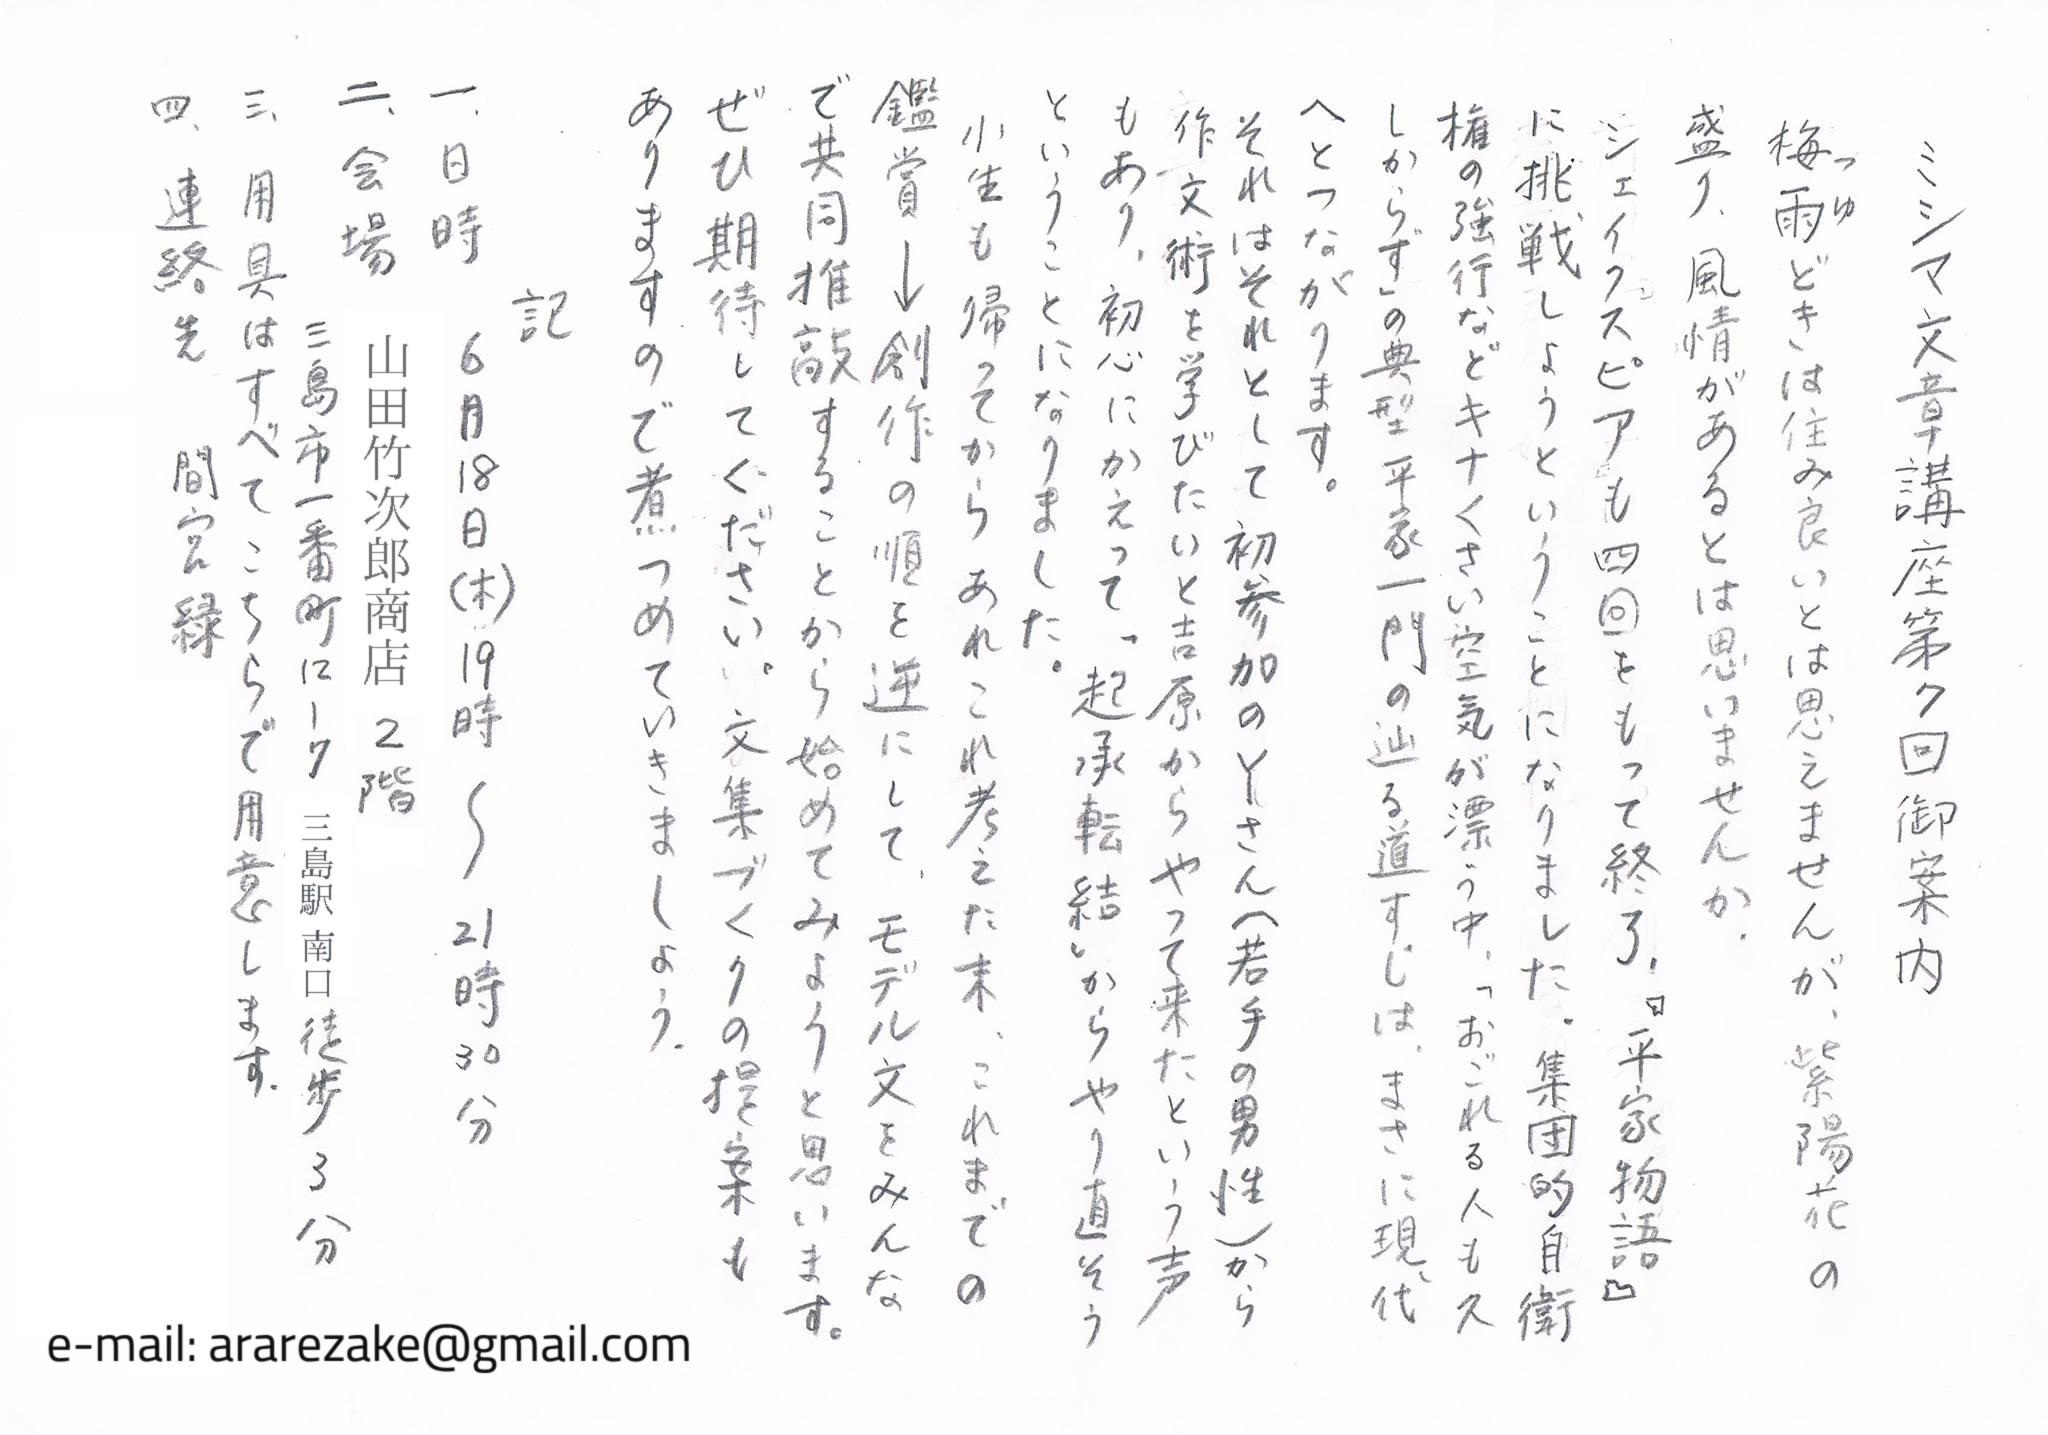 ミシマ文章講座第7回御案内
梅雨どきは住み良いとは思えませんが、紫陽花の
つゆ
盛り、風情があるとは思いませんか。
シェイクスピアも四回をもって終了、『平家物語』
に挑戦しようということになりました。集団的自衛
権の強行などキナくさい空気が漂う中、「おごれる人も久
しからず」の典型平家一門の辿る道すじは、まさに現代
へとつながります。
それはそれとして初参加のYさん(若手の男性)から
作文術を学びたいと吉原からやって来たという声
もあり、初心にかえって「起承転結」からやり直そう
ということになりました。
小生も帰ってからあれこれ考えた末、これまでの
鑑賞→創作の順を逆にして、モデル文をみんな
で共同推敲することから始めてみようと思います。
ぜひ期待してください。文集づくりの提案も
ありますので煮つめていきましょう。
記
一、日時 6月18日(木)19時〜21時30分
二、会場 山田竹次郎商店 2階
三島市一番町12-7 三島駅 南口 徒歩3分
三、用具はすべてこちらで用意します。
四、連絡先 間宮緑
e-mail: ararezake@gmail.com